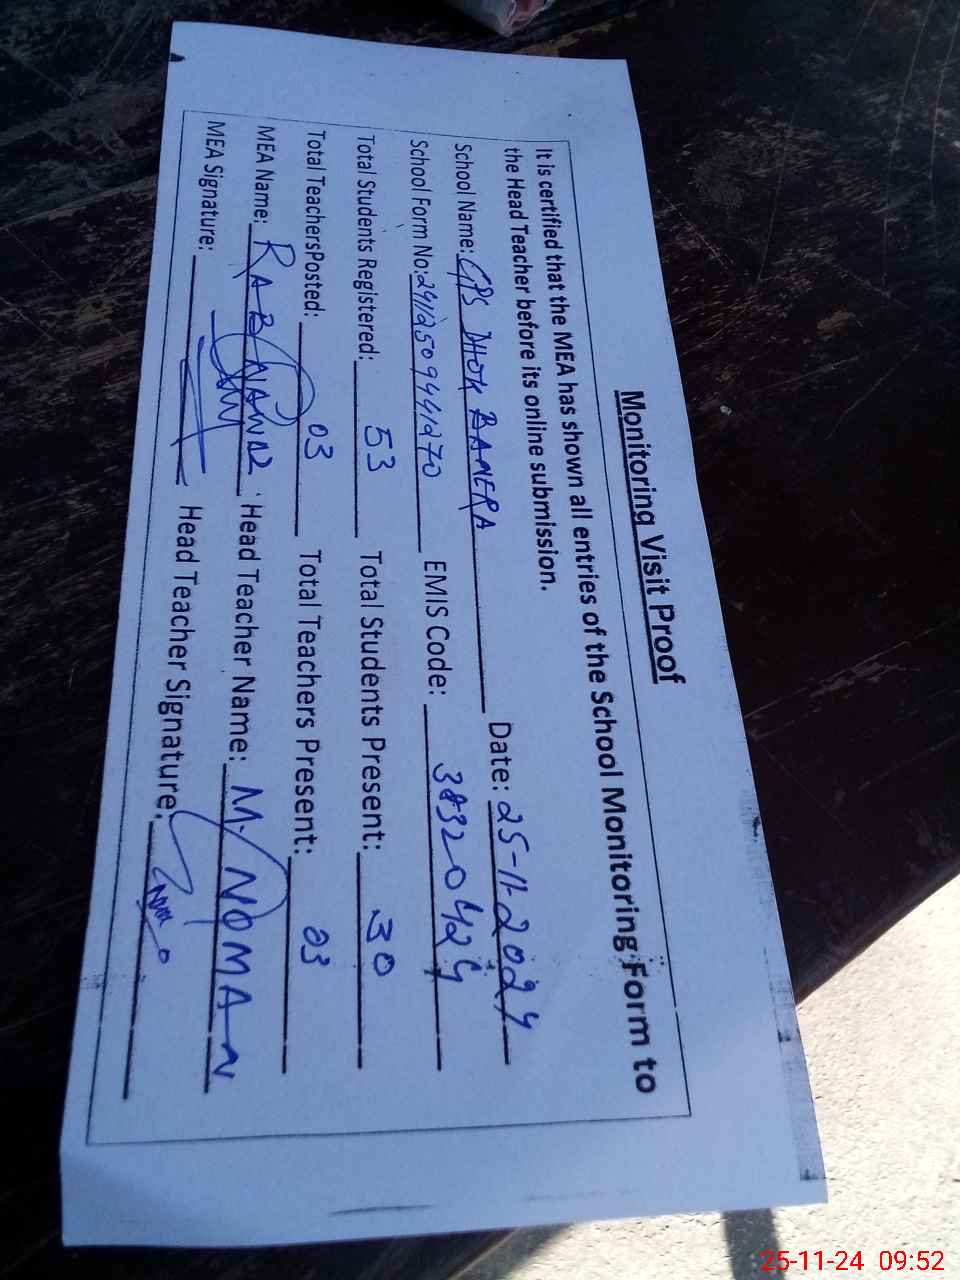 Monitoring Visit Proof
It is certified that the MEA has shown all entries of the School Monitoring Form to
the Head Teacher before its online submission.
School Name: GPS DHOK BANERA Date: 25-11-2024
School Form No: 241125094441270 EMIS Code: 38320424
Total Students Registered: 53 Total Students Present: 30
Total TeachersPosted: 03 Total Teachers Present: 03
MEA Name: RAB NAWAZ Head Teacher Name: M/NOMAN
MEA Signature: Head Teacher Signature:
25-11-24 09:52